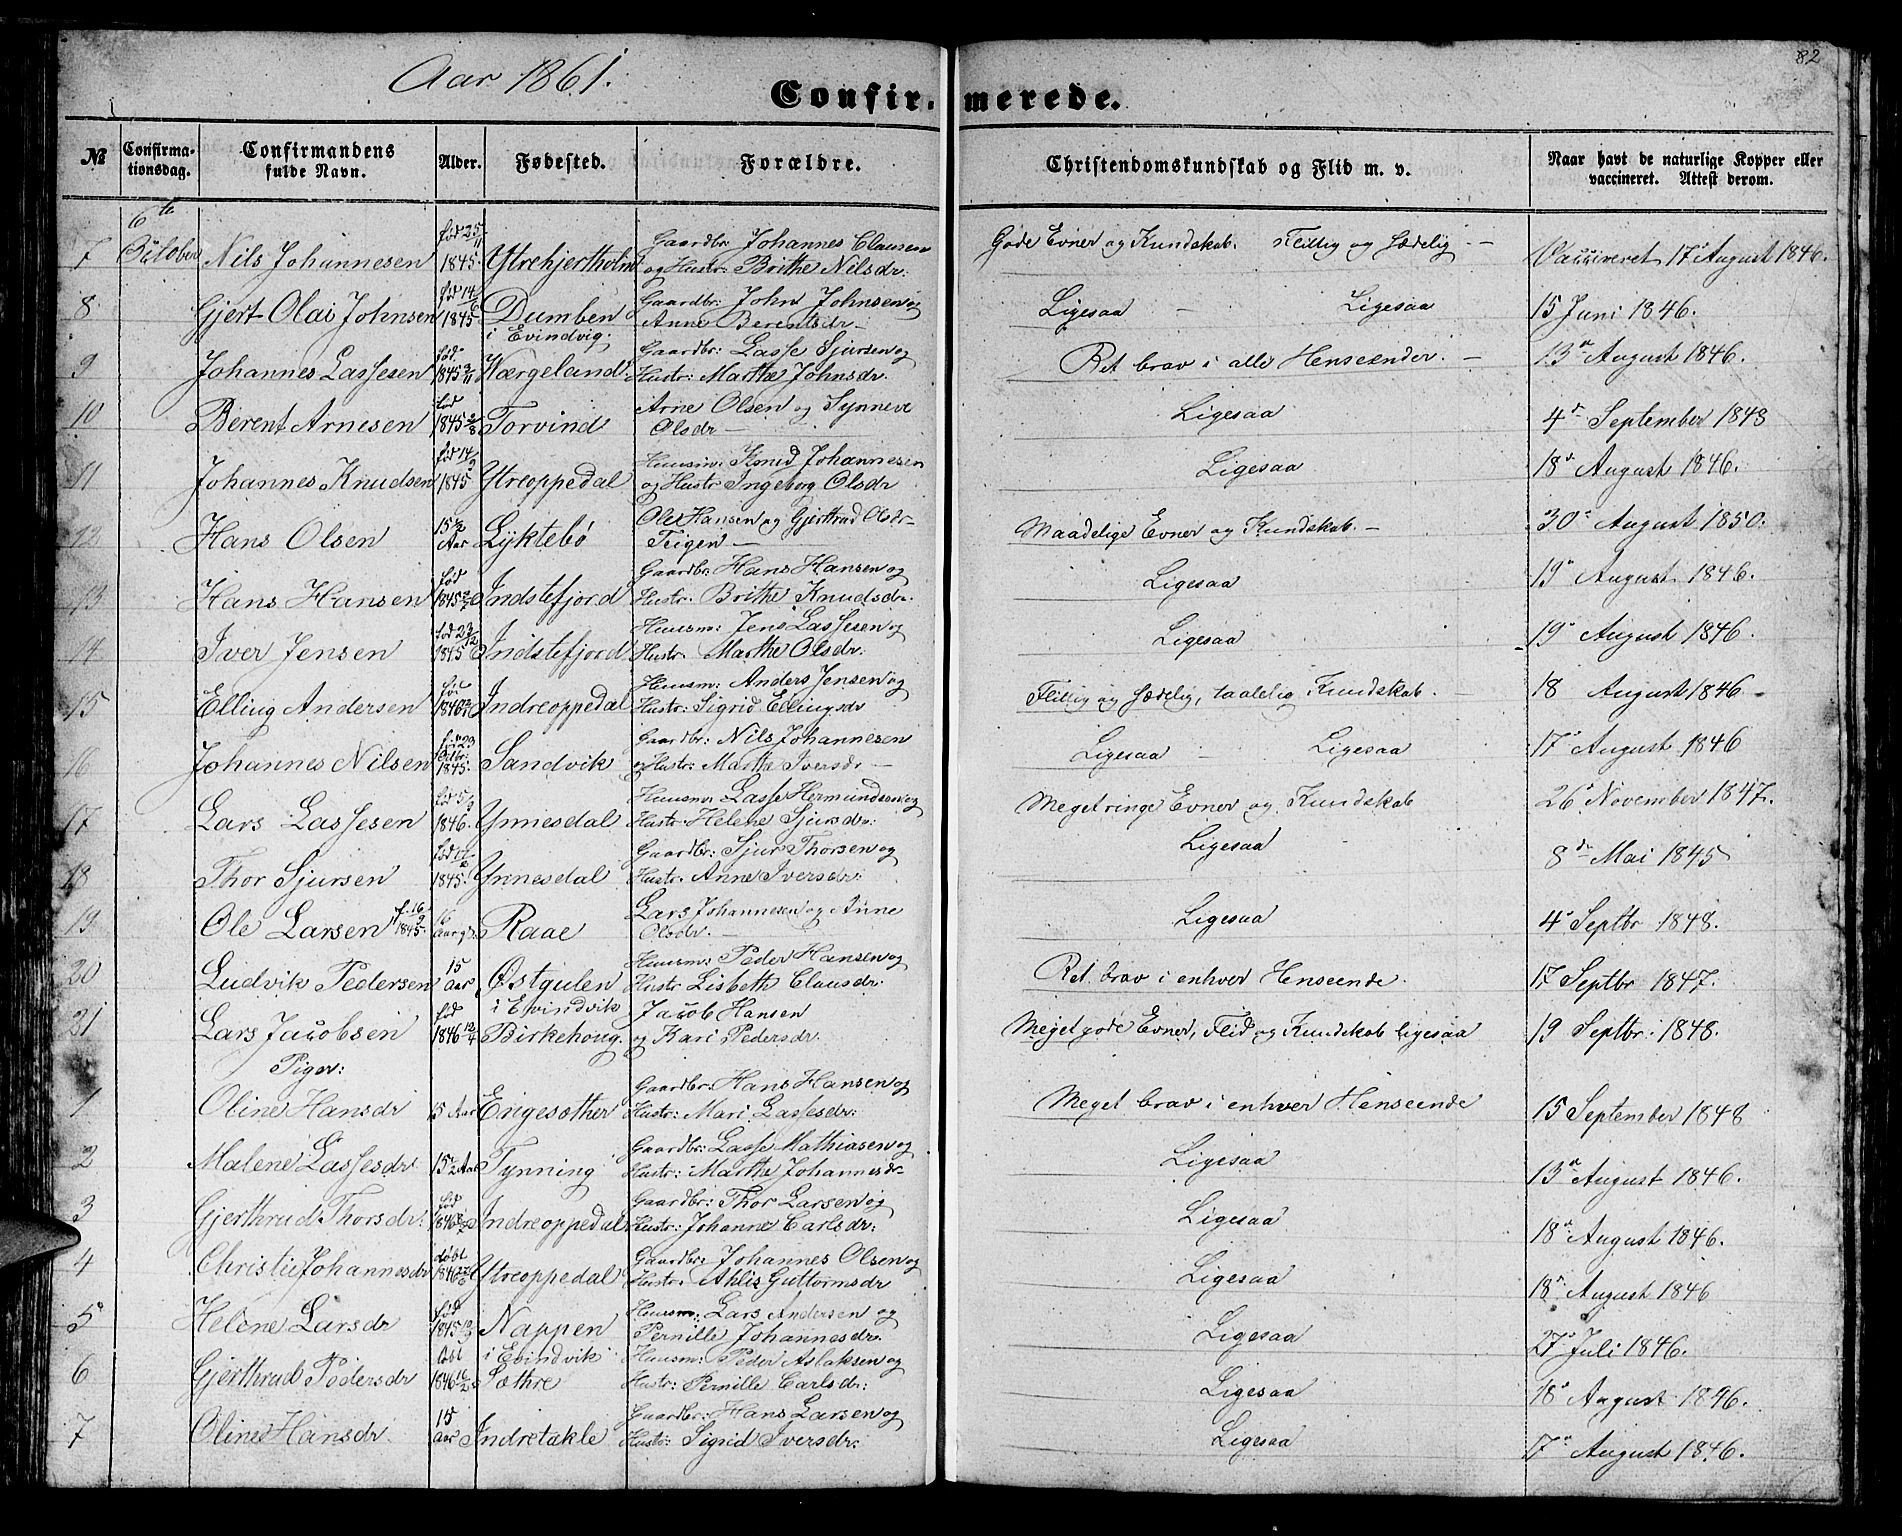 82
Aar 1861.
Confirmerede.
№ Confirmationsdag. Confirmandens fulde Navn. Alder. Fødested. Forældre. Christendomskundskab og Flid m. v. Naar havt de naturlige Kopper eller vaccineret. Attest derom.
6te
7 October Nils Johannesen fød 25/11 1845. Ytrehjertholm Gaardbr: Johannes Clausen og Hustr: Brithe Nilsdr: Gode Evner og Kundskab. Flittig og sædelig — Vaccineret 17de August 1846.
8 Gjert Olai Johnsen fød 14/6 1845 Dumben i Evindvig. Gaardbr: John Johnsen og Anne Berentsdr — Ligesaa — Ligesaa 15 Juni 1846.
9 Johannes Lassesen fød 1845 2/11 Værgeland Gaardbr: Lasse Sjursen og Hustr: Marthe Johnsdr. Ret brav i alle Henseender. — 13de August 1846.
10 Berent Arnesen fød 1845 2/8 Torvind Arne Olsen og Synneve Olsdr — Ligesaa 4de September 1848
11 Johannes Knudsen fød 14/9 1845 Ytreoppedal Huusm: Knud Johannesen og Hustr Ingeborg Olsdr Ligesaa 18de August 1846.
12 Hans Olsen 15 1/2 Aar Lyktebø Ole Hansen og Gjertrud Olsdr — Teigen — Maadelige Evner og Kundskab. — 30de August 1850.
13 Hans Hansen fød 1845 Indstefjord Gaardbr: Hans Hansen og Hustr. Brithe Knudsdr. Ligesaa 19de August 1846.
14 Iver Jensen fød 23/12 1845 Indstefjord Huusm: Jens Lassesen og Hustr. Marthe Olsdr: Ligesaa 19de August 1846.
15 Elling Andersen 1846 Indreoppedal Huusm: Anders Jensen og Hustr: Sigrid Ellingsdr Flittig og sædelig, taalelig Kundskab. — 18 August 1846 —
16 Johannes Nilsen 23 Octbr: 1845. Sandvik Gaardbr: Nils Johannesen og Hustr: Marthe Iversdr — Ligesaa — Ligesaa 17de August 1846
17 Lars Lassesen fød 1846. Ynnesdal Huusm: Lasse Hermundsen og Hustr: Helene Sjursdr: Meget ringe Evner og Kundskab 26de November 1847.
18 Thor Sjursen fød 1845. Ynnesdal Gaardbr: Sjur Thorsen og Hustr. Anne Iversdr: Ligesaa 8de Mai 1845
19 Ole Larsen f. 16/9 1845. 16 Aar Raae Lars Johannesen og Anne Olsdr. — Ligesaa 4de Septbr 1848.
20 Ludvik Pedersen 15 Aar Østgulen i Evindvik Huusm: Peder Hansen og Hustr Lisbeth Clausdr: Ret brav i enhver Henseende. 17 Septbr 1847.
21 Lars Jacobsen fød 1846 12/4 Birkehoug. Jacob Hansen og Kari Pedersdr. Meget gode Evner, Flid og Kundskab ligesaa 19 Septbr: 1848.
Piger:
1 Oline Hansdr 15 Aar Engesæther Gaardbr: Hans Hansen og Hustr: Mari Lassesdr: Meget brav i enhver Henseende 15 September 1848
2 Malene Lassesdr 15 1/2 Aar Tynning Gaardbr: Lasse Mathiasen og Hustr: Marthe Johannesdr Ligesaa 13de August 1846.
3 Gjerthrud Thorsdr: fød 1846 Indreoppedal Gaardbr: Thor Larsen og Hustr: Johanne Carlsdr: Ligesaa 18de August 1846.
4 Christie Johannesdr døbt 1846 Ytreoppedal Gaardbr: Johannes Olsen og Hustr. Ahlis Guttormsdr Ligesaa 18de August 1846
5 Helene Larsdr fød 1845 Nappen i Evindvik Huusm: Lars Andersen og Pernille Johannesdr. Ligesaa 27de Juli 1846.
6 Gjerthrud Pedersdr 1846 Sæthre Huusm: Peder Aslaksen og Hustr: Pernille Carlsdr: Ligesaa 18de August 1846.
7 Oline Hansdr. 15 Aar Indretakle Gaardbr: Hans Larsen og Hustr: Sigrid Iversdr: Ligesaa 17de August 1846.